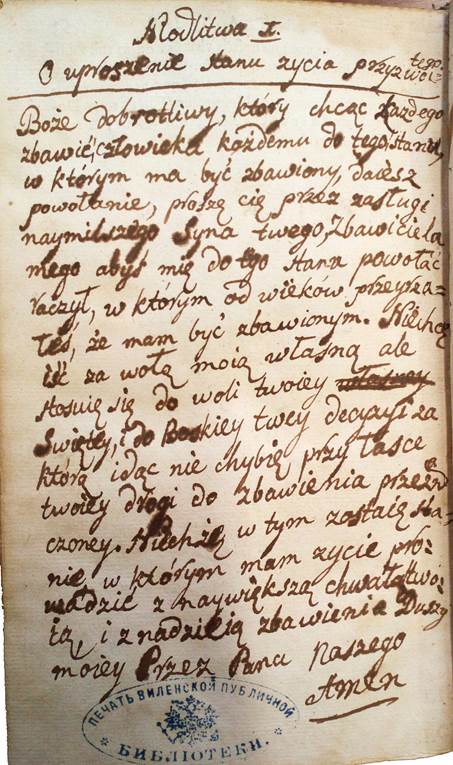 Modlitwa I.
O uproszenie stanu zycia przyzwoi=
tego.
Boże dobrotliwy, ktory chcąc każdego
zbawić człowieka kożdemu do tego stanu,
w ktorym ma być zbawiony, daiesz
powołanie, proszę cię przez zasługi
naymilszego Syna twego, Zbawiciela
mego abyś mię do tego stanu powołać
raczył, w ktorym od wiekow przeyrza=
łeś, że mam być zbawionym. Niechcę
iść za wolą moią własną ale
stosuię się do woli twoiey
Swiętey, i do Boskiey twey decyzyi za
ktorą idąc nie chybię przy łasce
twoiey drogi do zbawienia przezna
czoney. Niech żyię w tym zostaię sta=
nie, w ktorym mam zycie pro=
wadzić z naywiększą chwałą two=
ią, i z nadzieią zbawienia Duszy
moiey Przez Pana Naszego
Amen
ПЕЧАТЬ ВИЛЕНСКОЙ ПУБЛИЧНОЙ
БИБЛІОТЕКИ.